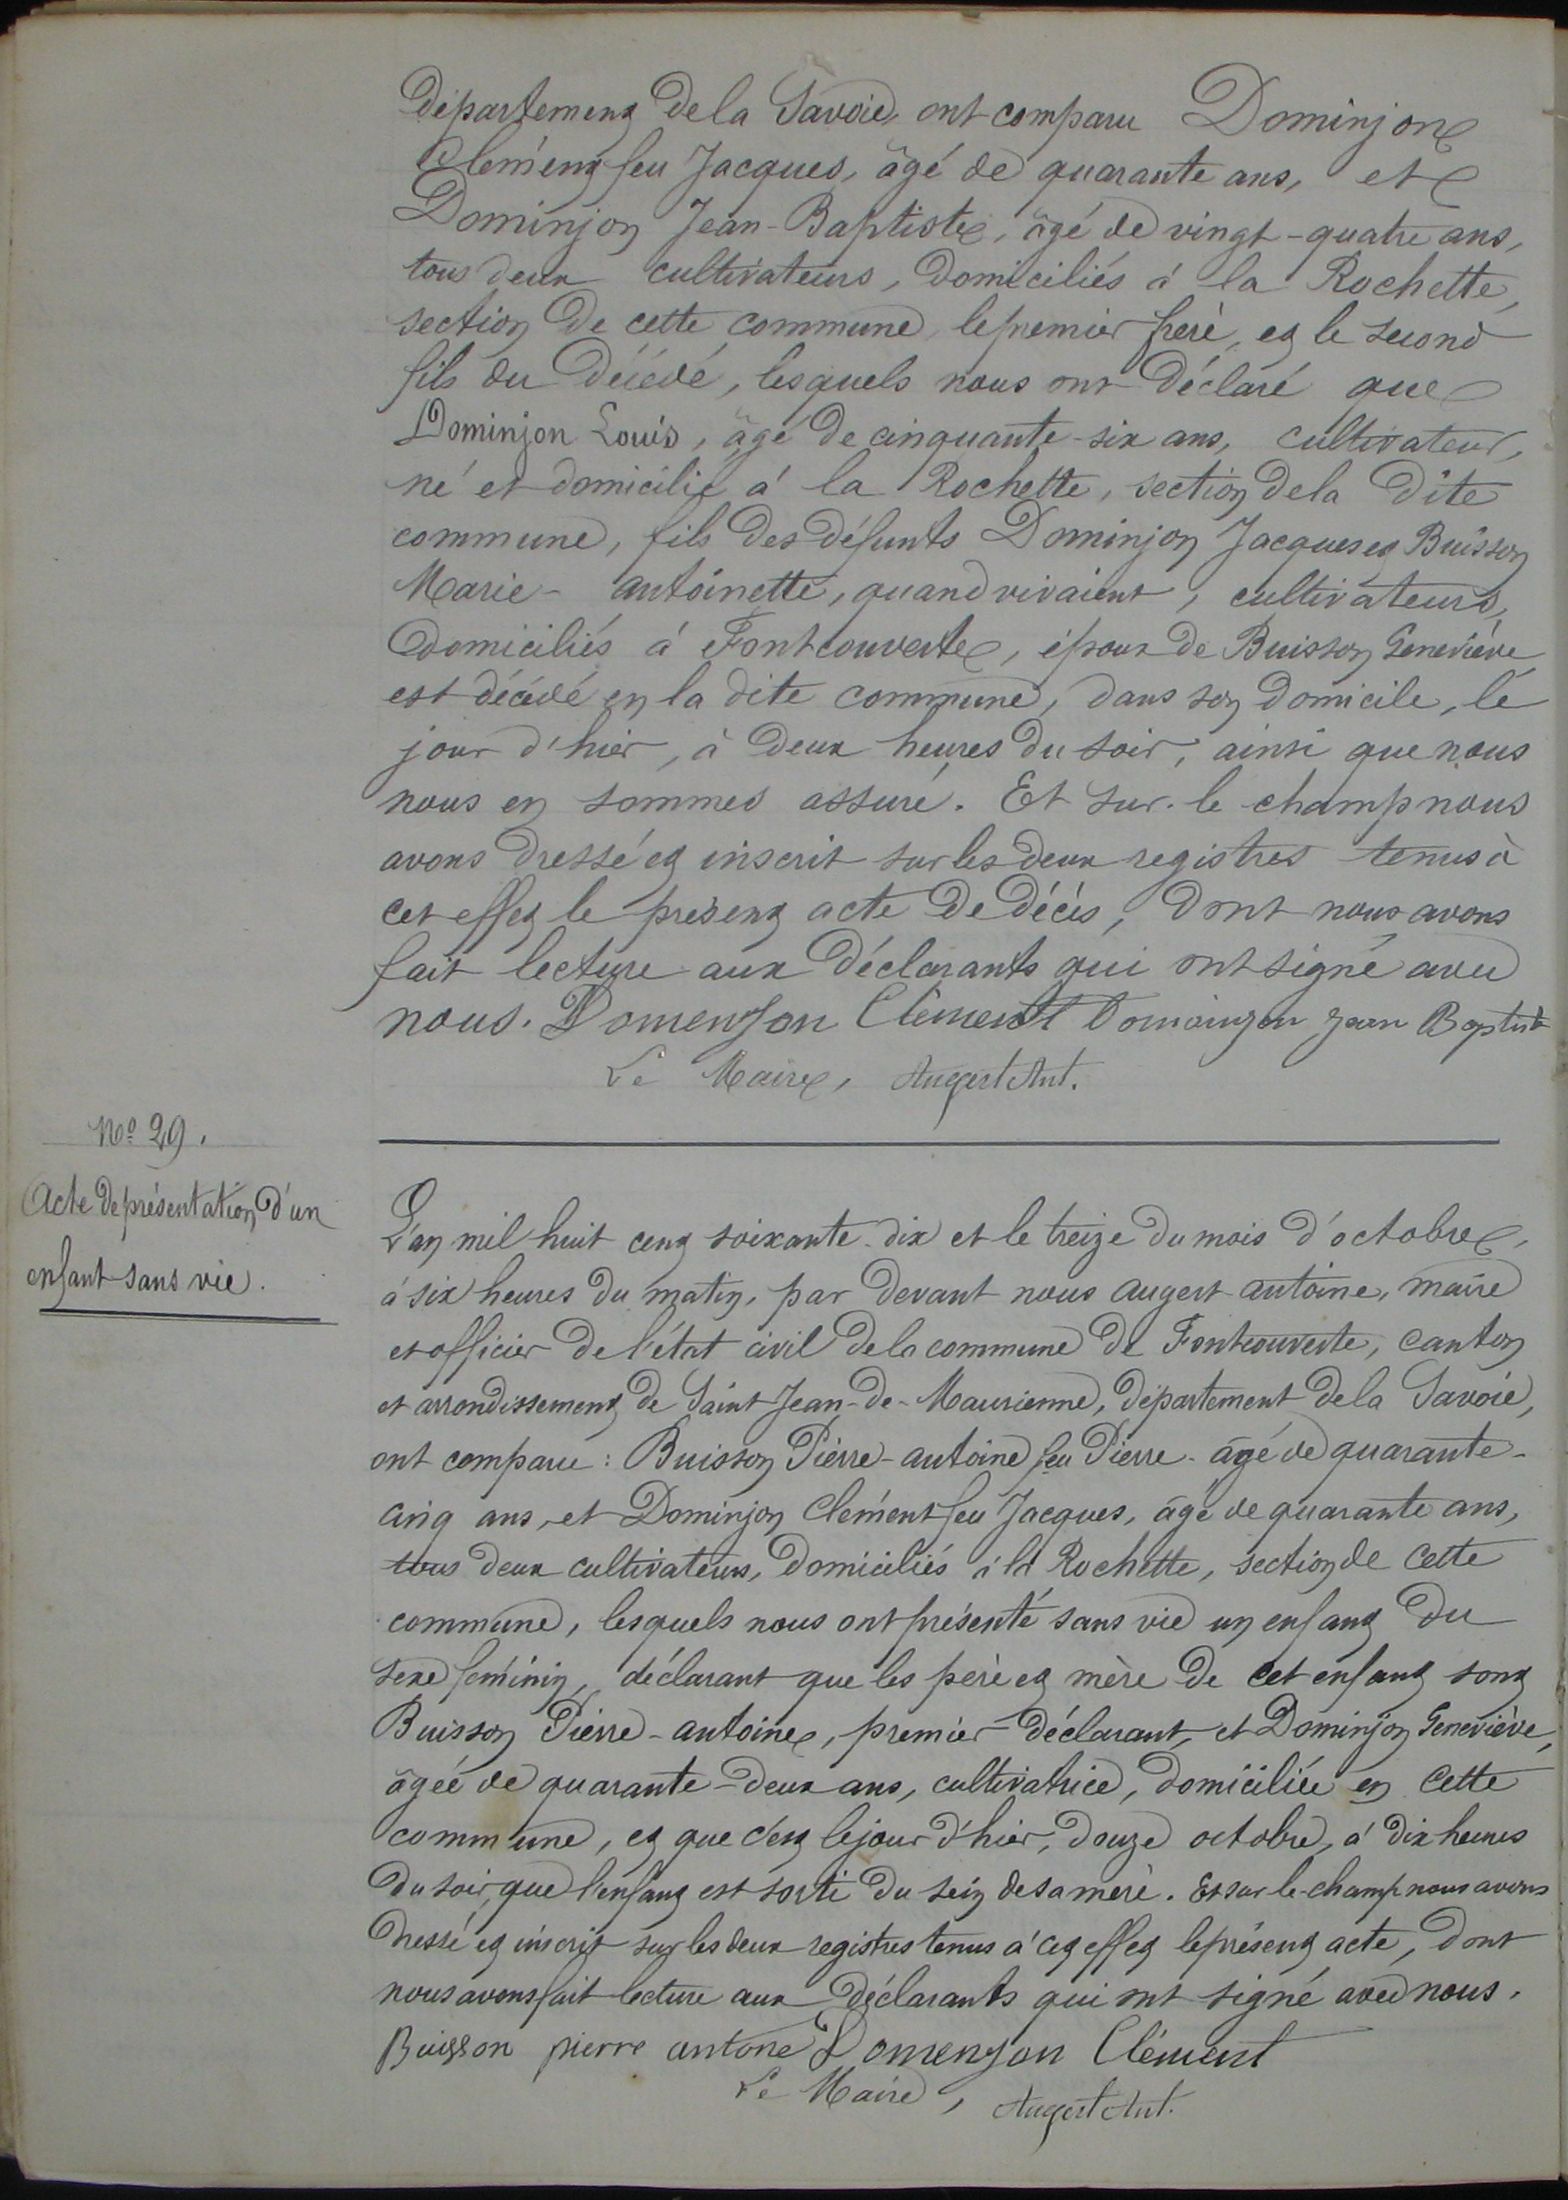 département de la Savoie, ont comparu Dominjon
Clément feu Jacques, âgé de quarante ans, et
Dominjon Jean-Baptiste, âgé de vingt-quatre ans,
tous deux cultivateurs, domiciliés à la Rochette,
section de cette commune, le premier frère, et le second
fils du décédé, lesquels nous ont déclaré que
Dominjon Louis, âgé de cinquante-six ans, cultivateur,
né et domicilié à la Rochette, section de la dite
commune, fils des défunts Dominjon Jacques et Buisson
Marie-antoinette, quand vivaient, cultivateurs,
domiciliés à Fontcouverte, époux de Buisson Geneviève
est décédé en la dite commune, dans son domicile, le
jour d'hier, à deux heures du soir, ainsi que nous
nous en sommes assuré. Et sur-le-champ nous
avons dressé et inscrit sur les deux registres tenus à
cet effet le présent acte de décès, dont nous avons
fait lecture aux déclarants qui ont signé avec
nous. Domenjon Clément Domainjon jean Baptist
Le Maire, Augert Ant.
No 29.
Acte de présentation d'un
enfant sans vie.
L'an mil huit cent soixante-dix et le treize du mois d'octobre,
à six heures du matin, par devant nous augert antoine, maire
et officier de l'état civil de la commune de Fontcouverte, canton
et arrondissement de Saint Jean-de-Maurienne, département de la Savoie,
ont comparu : Buisson Pierre-antoine feu Pierre âgé de quarante-
cinq ans, et Dominjon Clément feu Jacques, âgé de quarante ans,
tous deux cultivateurs, domiciliés à la Rochette, section de cette
commune, lesquels nous ont présenté sans vie un enfant du
sexe féminin, déclarant que les père et mère de cet enfant sont
Buisson Pierre-antoine, premier déclarant, et Dominjon Geneviève,
âgée de quarante-deux ans, cultivatrice, domiciliée en cette
commune, et que c'est le jour d'hier, douze octobre, à dix heures
du soir, que l'enfant est sorti du sein de sa mère. Et sur-le-champ nous avons
dressé et inscrit sur les deux registres tenus à cet effet le présent acte, dont
nous avons fait lecture aux déclarants qui ont signé avec nous.
Buisson pierre antone Domenjon Clément
Le Maire, Augert Ant.